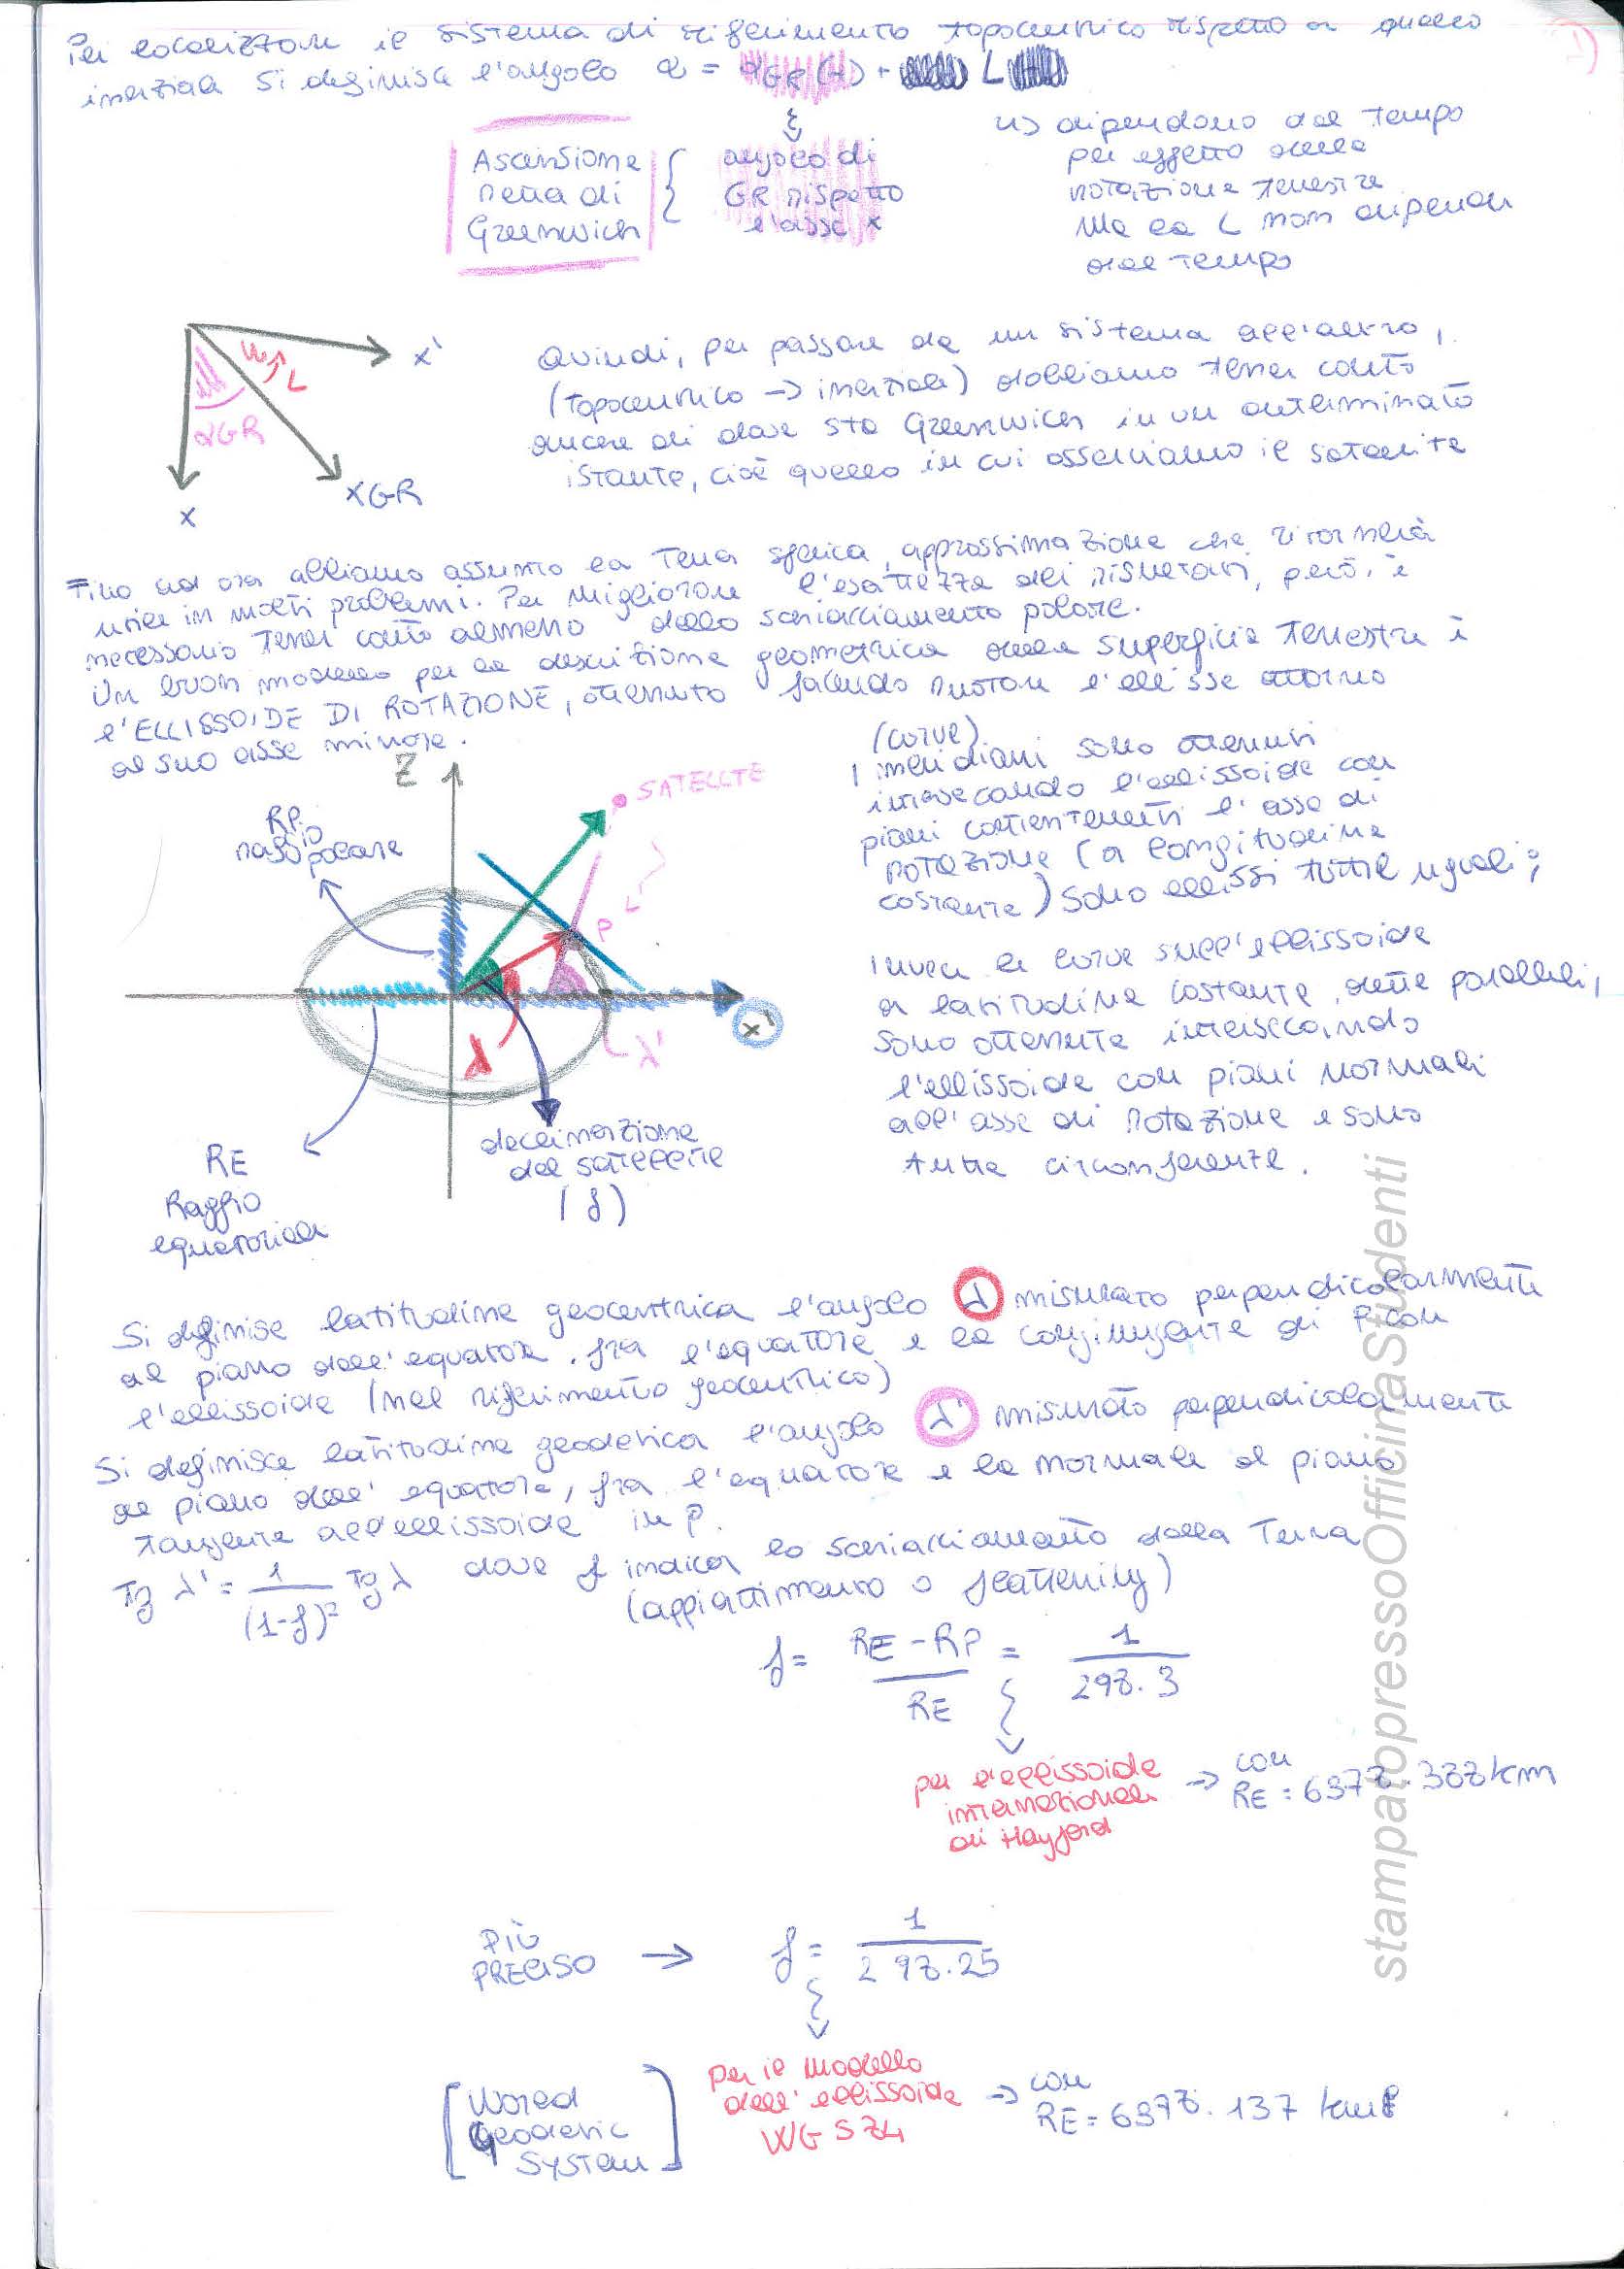 Per localizzare il sistema di riferimento topocentrico rispetto a quello
inerziale si definisce l'angolo α = αGR(t) + L
Ascensione
retta di
Greenwich
angolo di
GR rispetto
l'asse x
↳ dipendono dal tempo
per effetto della
rotazione terrestre
Ma la L non dipende
dal tempo
x'
L
αGR
xGR
x
Quindi, per passare da un sistema all'altro,
(topocentrico → inerziale) dobbiamo tener conto
anche di dove sta Greenwich in un determinato
istante, cioè quello in cui osserviamo il satellite
Fino ad ora abbiamo assunto la Terra sferica, approssimazione che ritornerà
utile in molti problemi. Per migliorare l'esattezza dei risultati, però, è
necessario tener conto almeno dello schiacciamento polare.
Un buon modello per la descrizione geometrica della superficie terrestre è
l'ELLISSOIDE DI ROTAZIONE, ottenuto facendo ruotare l'ellisse attorno
al suo asse minore.
Z
SATELLITE
RP
raggio polare
P
x'
λ
λ'
RE
Raggio
equatoriale
declinazione
del satellite
(δ)
(curve)
I meridiani sono ottenuti
intersecando l'ellissoide con
piani contenenti l'asse di
rotazione (a longitudine
costante) sono ellissi tutte uguali;
invece le curve sull'ellissoide
a latitudine costante, dette paralleli,
sono ottenute intersecando
l'ellissoide con piani normali
all'asse di rotazione e sono
tutte circonferenze.
Si definise latitudine geocentrica l'angolo λ misurato perpendicolarmente
al piano dell'equatore, fra l'equatore e la congiungente di P con
l'ellissoide (nel riferimento geocentrico)
Si definisce latitudine geodetica l'angolo λ' misurato perpendicolarmente
al piano dell'equatore, fra l'equatore e la normale al piano
tangente all'ellissoide in P.
Tg λ' = 1/(1-f)² Tg λ dove f indica lo schiacciamento della Terra
(appiattimento o flattening)
f = RE-RP/RE = 1/298.3
per l'ellissoide
internazionale
di Hayford
→ con
RE = 6378.388 km
PIÙ
PRECISO → f = 1/298.25
[World
Geodetic
System]
per il modello
dell'ellissoide
WGS84
→ con
RE = 6378.137 km
stampatopressoOfficinaStudenti